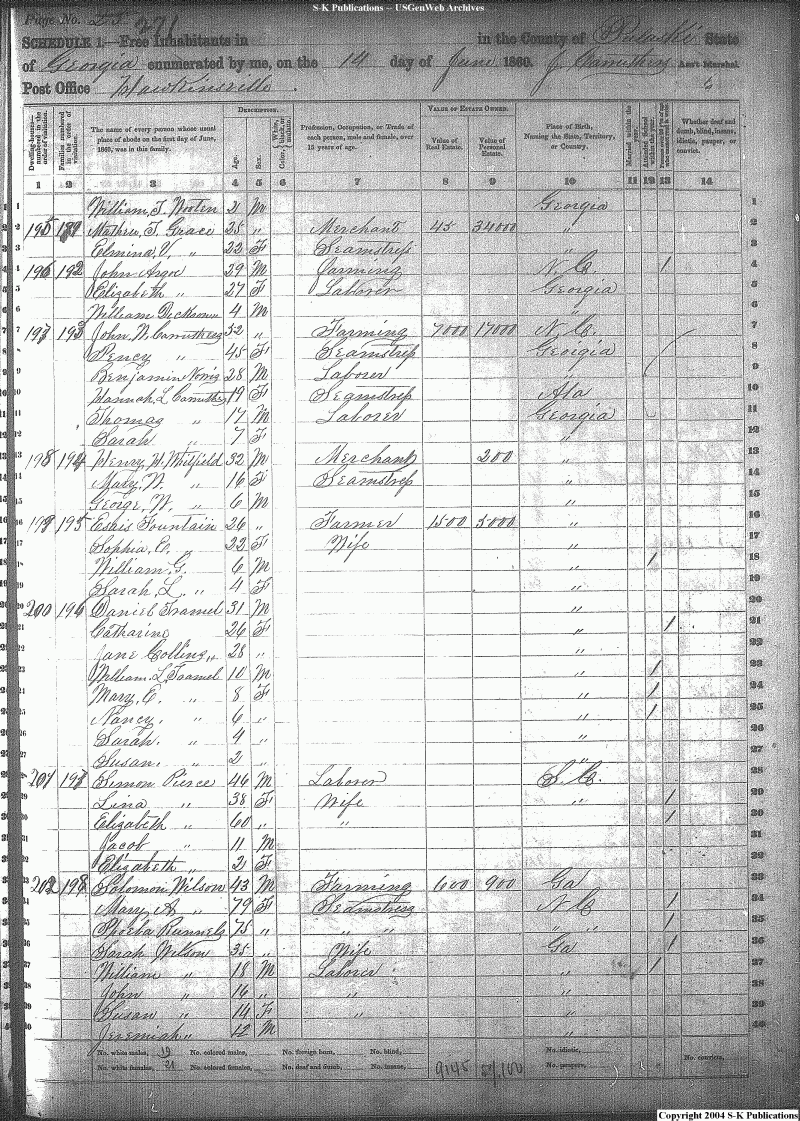 S-K Publications – USGenWeb Archives
Page No. 271
SCHEDULE 1.—Free Inhabitants in in the County of Pulaski State
of Georgia enumerated by me, on the 14 day of June 1860. Ass't Marshal.
Post Office Hawkinsville.
Dwelling-houses—numbered in the order of visitation.
Families numbered in the order of visitation.
The name of every person whose usual place of abode on the first day of June, 1860, was in this family.
DESCRIPTION.
Age.
Sex.
Color, {White, black, or mulatto.
Profession, Occupation, or Trade of each person, male and female, over 15 years of age.
VALUE OF ESTATE OWNED.
Value of Real Estate.
Value of Personal Estate.
Place of Birth, Naming the State, Territory, or Country.
Married within the year.
Attended School within the year.
Whether deaf and dumb, blind, insane, idiotic, pauper, or convict.
1 2 3 4 5 6 7 8 9 10 11 12 13 14
1 William, T. Wooten 2 M Georgia 1
2 195 Mathew, T. Grace 25 " Merchant 45 34000 " 2
3 Elmina, V, " 22 F Seamstress " 3
4 196 192 John 29 M Farming N. C. / 4
5 Elizabeth " 27 F Laborer Georgia 5
6 William 4 M " 6
7 197 193 John, W, " Farming 7000 17000 N. C. 7
8 " 45 F Seamstress Georgia 8
9 Benjamin 28 M Laborer " 9
10 Hannah, L 19 F Seamstress Ala 10
11 Thomas " 17 M Laborer Georgia 11
12 Sarah " 7 F " 12
13 198 194 Henry, W. Whitfield 32 M Merchant 200 " 13
14 Mary, N. " 16 F Seamstress " 14
15 George, W. " 6 M " 15
16 199 195 Fountain 26 " Farmer 1500 5000 " 16
17 Sophia, C. " 22 F Wife " 17
18 William G. " 6 M " / 18
19 Sarah, L. " 4 F " 19
20 200 196 Daniel Framel 31 M " 20
21 Catharine 26 F " / 21
22 Jane Collins " 28 " " 22
23 William, L, Framel 10 M " / 23
24 Mary, E. " 8 F " / 24
25 Nancy. " 6 " " / 25
26 Sarah. " 4 " " 26
27 Susan. " 2 " " 27
28 201 197 Simon Pierce 46 M Laborer S. C. 28
29 Lina " 38 F Wife " / 29
30 Elizabeth " 60 " " / 30
31 Jacob " 11 M 31
32 Elizabeth " 2 F 32
33 202 198 Solomon Wilson 43 M Farming 600 900 Ga 33
34 Mary A " 79 F Seamstress N C / 34
35 Phoeba Runnels 75 " " " " " / 35
36 Sarah Wilson 35 " Wife Ga / 36
37 William " 18 M Laborer " / 37
38 John " 16 " " " 38
39 Susan " 14 F " " 39
40 Jeremiah " 12 M " 40
No. white males, 19 No. colored males, No. foreign born, No. blind, No. idiotic, No. convicts,
No. white females, 21 No. colored females, No. deaf and dumb, No. insane, 9145 No. paupers,
Copyright 2004 S-K Publications